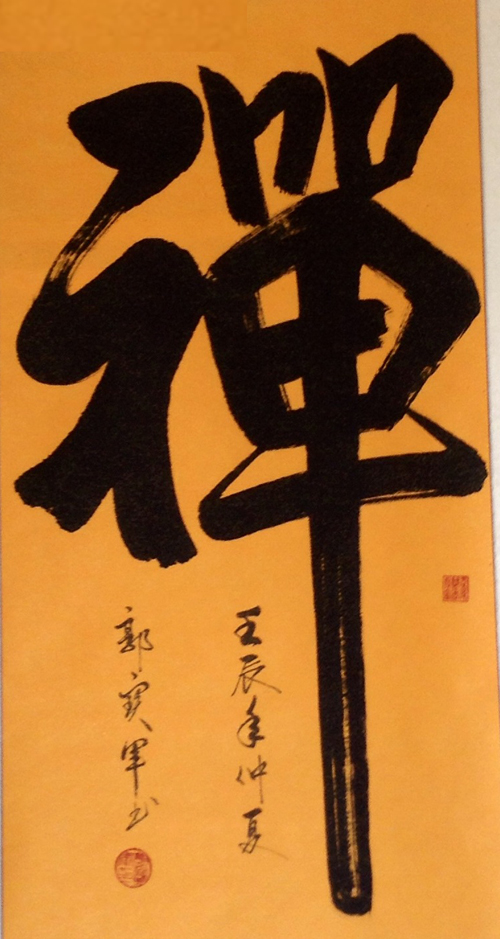 禪
壬辰年仲夏
郭寶軍书